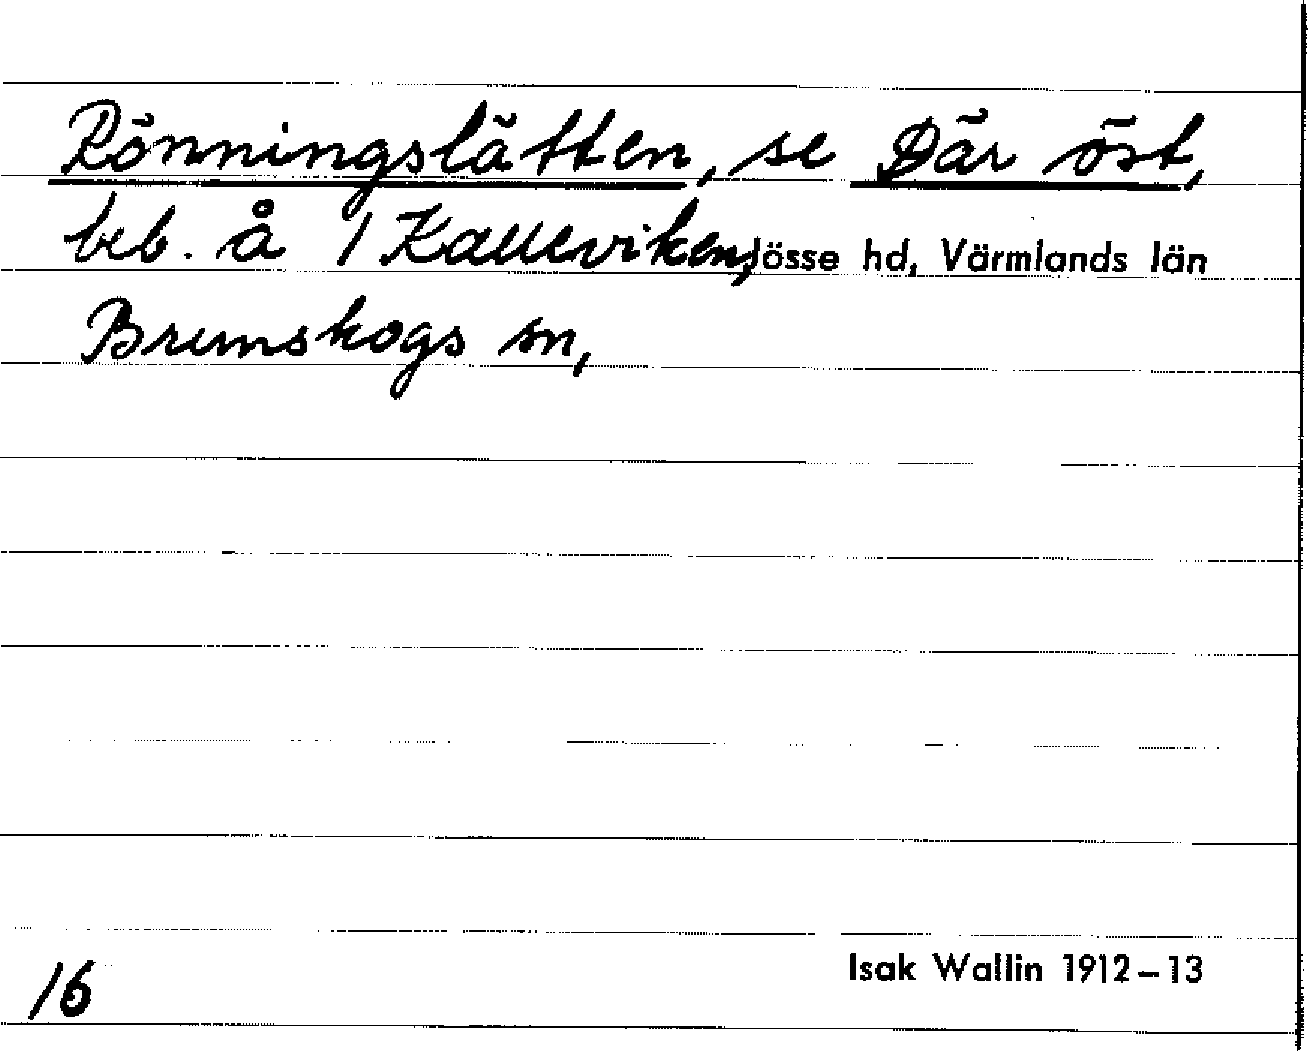 Rönningslätten, se Där öst,
beb. å 1 Kalleviken, Jösse hd, Värmlands län
Brunskogs sn,
16
Isak Wallin 1912–13